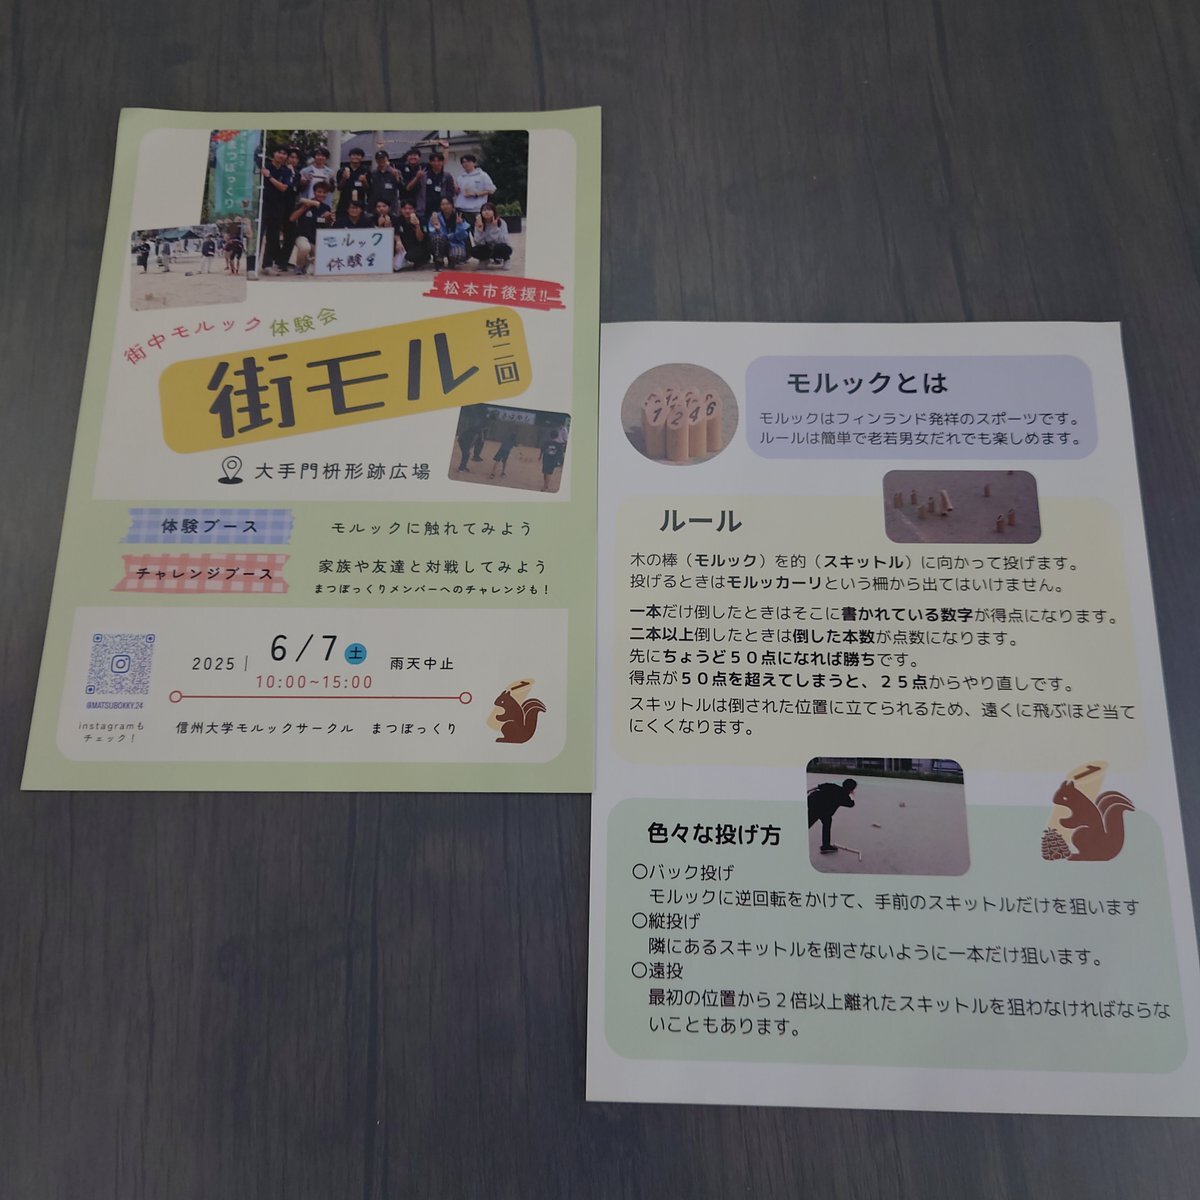 まつぼっくり
モルック
体験会
松本市後援!!
街中モルック体験会
街モル
第二回
大手門枡形跡広場
体験ブース
モルックに触れてみよう
チャレンジブース
家族や友達と対戦してみよう
まつぼっくりメンバーへのチャレンジも!
2025
6/7
土
雨天中止
10:00~15:00
@MATSUBOKKY.24
instagramも
チェック!
信州大学モルックサークル まつぼっくり
1
1 2 4 6
モルックとは
モルックはフィンランド発祥のスポーツです。
ルールは簡単で老若男女だれでも楽しめます。
ルール
木の棒(モルック)を的(スキットル)に向かって投げます。
投げるときはモルッカーリという柵から出てはいけません。
一本だけ倒したときはそこに書かれている数字が得点になります。
二本以上倒したときは倒した本数が点数になります。
先にちょうど50点になれば勝ちです。
得点が50点を超えてしまうと、25点からやり直しです。
スキットルは倒された位置に立てられるため、遠くに飛ぶほど当て
にくくなります。
1
色々な投げ方
○バック投げ
モルックに逆回転をかけて、手前のスキットルだけを狙います
○縦投げ
隣にあるスキットルを倒さないように一本だけ狙います。
○遠投
最初の位置から2倍以上離れたスキットルを狙わなければならな
いこともあります。